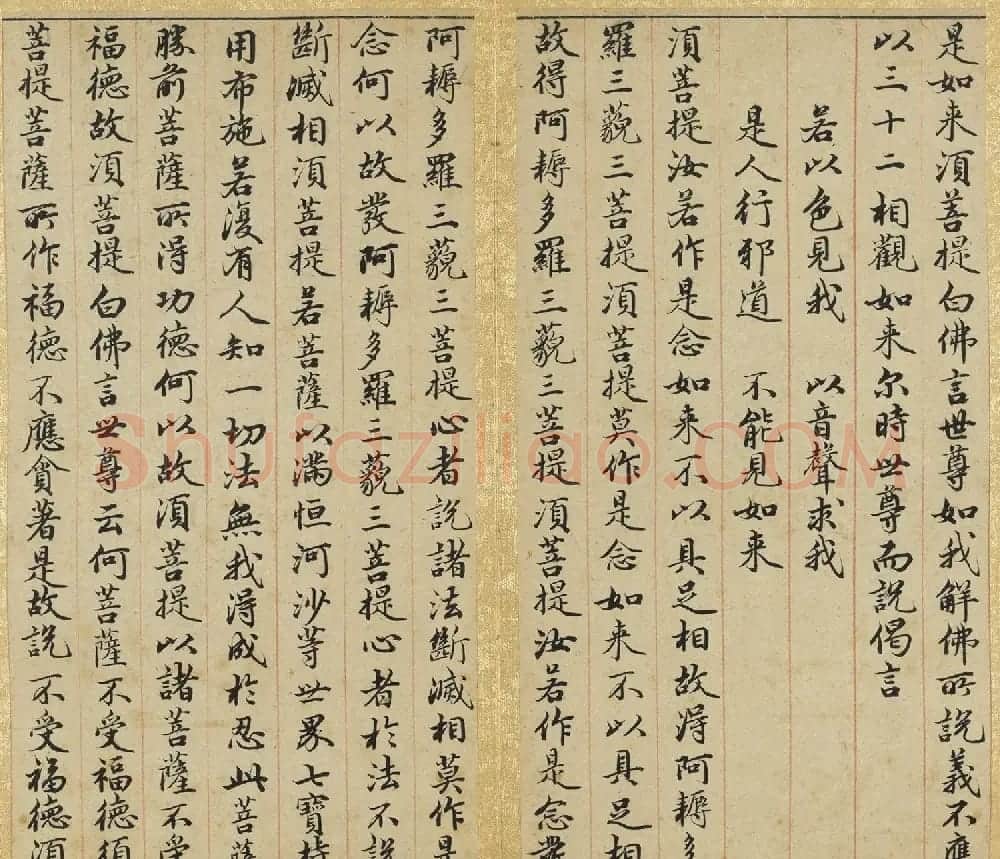 是如来須菩提白佛言世尊如我解佛所說義不應
以三十二相觀如来尔時世尊而說偈言
若以色見我 以音聲求我
是人行邪道 不能見如来
須菩提汝若作是念如来不以具足相故得阿耨多
羅三藐三菩提須菩提莫作是念如来不以具足相
故得阿耨多羅三藐三菩提須菩提汝若作是念發
阿耨多羅三藐三菩提心者說諸法斷滅相莫作是
念何以故發阿耨多羅三藐三菩提心者於法不說
斷滅相須菩提若菩薩以滿恒河沙等世界七寶持
用布施若復有人知一切法無我得成於忍此菩薩
勝前菩薩所得功德何以故須菩提以諸菩薩不受
福德故須菩提白佛言世尊云何菩薩不受福德須
菩提菩薩所作福德不應貪著是故說不受福德須
shufaziliao.COM